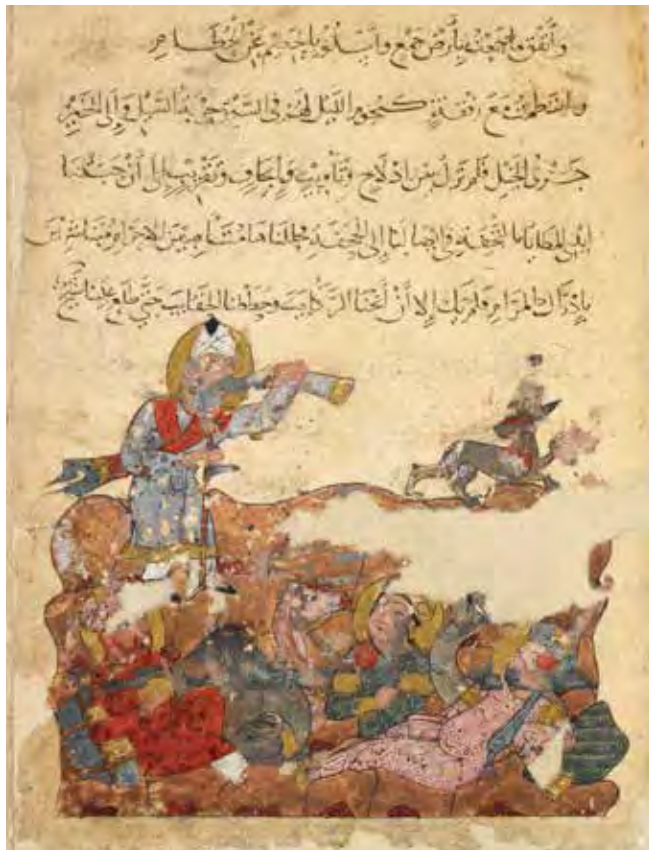 وأنفق ما جمعت بأرض جمع وأسلو بالحطيم عن الحطام
وانتظمت مع رفقة كنجوم الليل لهم في السير جرية السيل وإلى الخير
جري الخيل فلم نزل بين إدلاج وتأويب وإيجاف وتقريب إلى أن حبتنا
أيدي المطايا بالتحفة في إيصالنا إلى الجحفة فحللناها متأهبين للإحرام متباشرين
بإدراك المرام فلم يك إلا أن أنخنا الركايب وحططنا الحقايب حتى طلع علينا